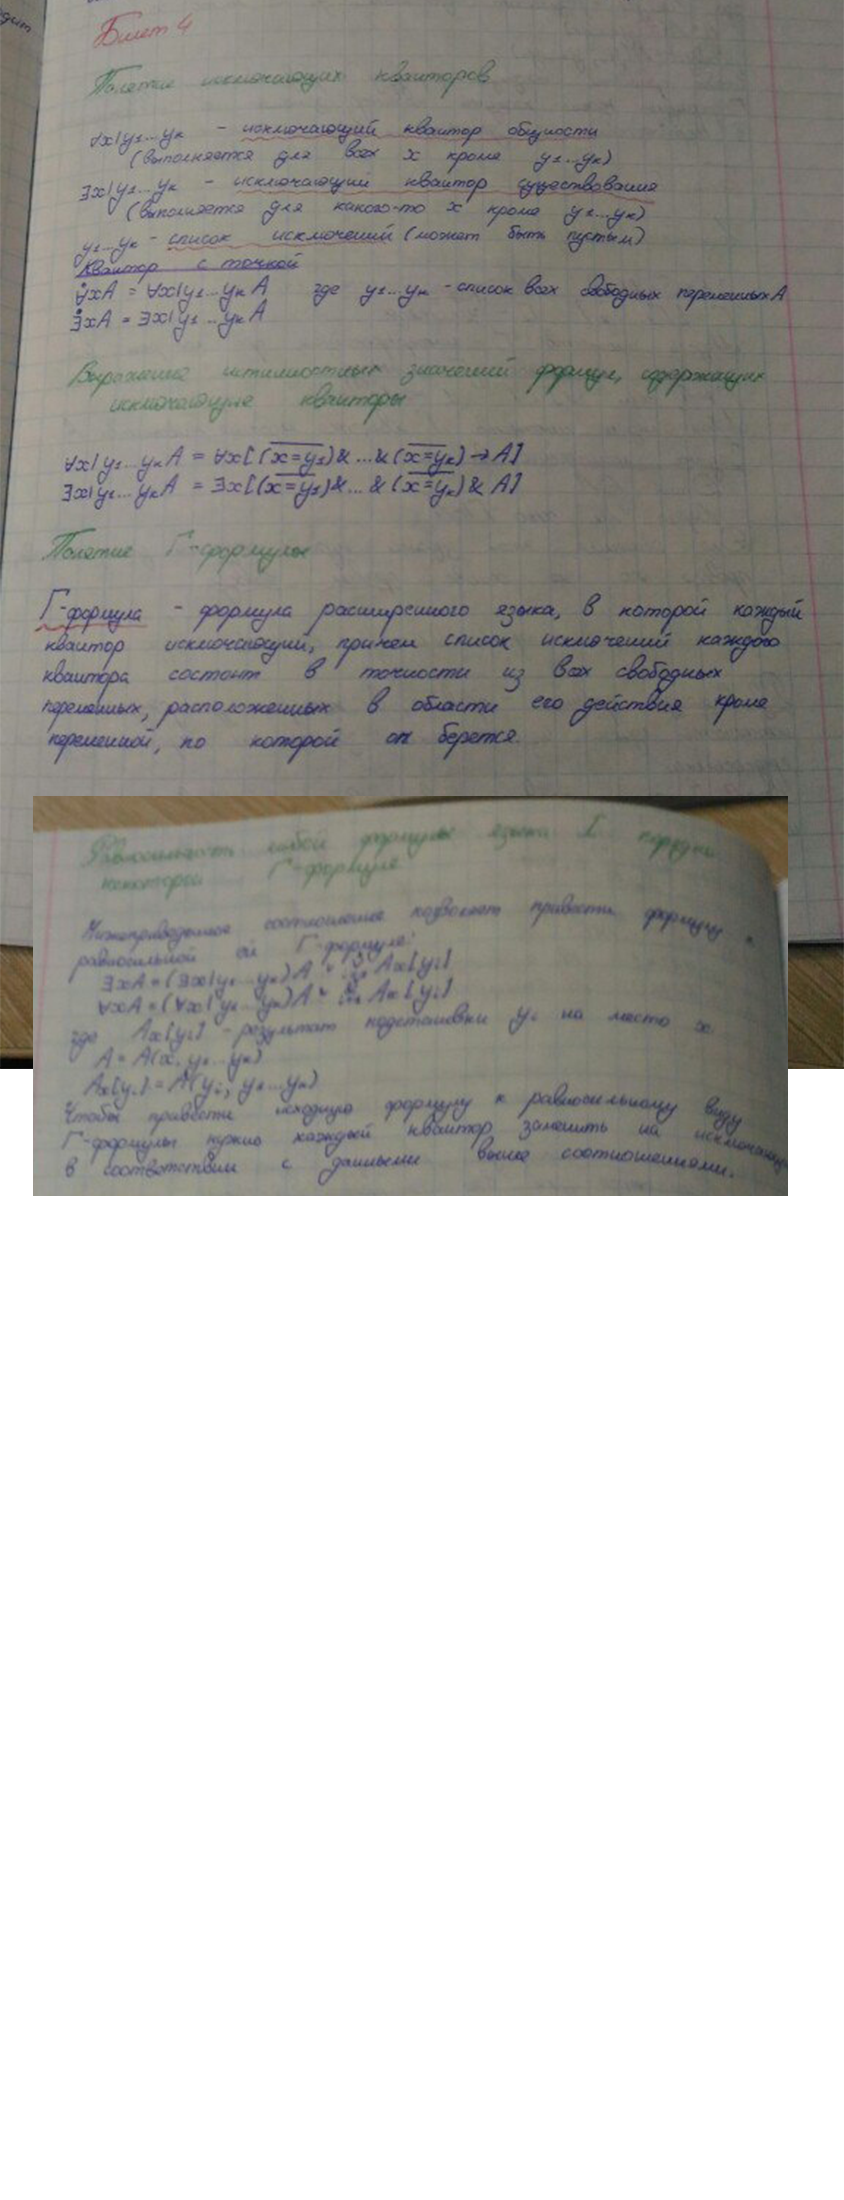 дит
Билет 4
Понятие исключающих кванторов
∀x/y₁...yₖ - исключающий квантор общности
(выполняется для всех x кроме y₁...yₖ)
∃x/y₁...yₖ - исключающий квантор существования
(выполняется для какого-то x кроме y₁...yₖ)
y₁...yₖ - список исключений (может быть пустым)
Квантор с точкой
∀̇xA = ∀x/y₁...yₖ A где y₁...yₖ - список всех свободных переменных A
∃̇xA = ∃x/y₁...yₖ A
Выражение истинностных значений формул, содержащих
исключающие кванторы
∀x/y₁...yₖ A = ∀x[(x̅=̅y̅₁)&...&(x̅=̅y̅ₖ)→A]
∃x/y₁...yₖ A = ∃x[(x̅=̅y̅₁)&...&(x̅=̅y̅ₖ)& A]
Понятие Г-формулы
Г-формула - формула расширенного языка, в которой каждый
квантор исключающий, причем список исключений каждого
квантора состоит в точности из всех свободных
переменных, расположенных в области его действия кроме
переменной, по которой он берется.
Равносильность любой формулы языка I порядка
некоторой Г-формуле
Нижеприведенное соотношение позволяет привести формулу к
равносильной ей Г-формуле:
∃xA = (∃x/y₁...yₙ)A Aₓ[yᵢ]
∀xA = (∀x/y₁...yₙ)A Aₓ[yᵢ]
где Aₓ[yᵢ] - результат подстановки yᵢ на место x.
A = A(x, y₁...yₙ)
Aₓ[yᵢ] = A(yᵢ, y₁...yₙ)
Чтобы привести исходную формулу к равносильному виду
Г-формулы нужно каждый квантор заменить на исключающий
в соответствии с данными выше соотношениями.